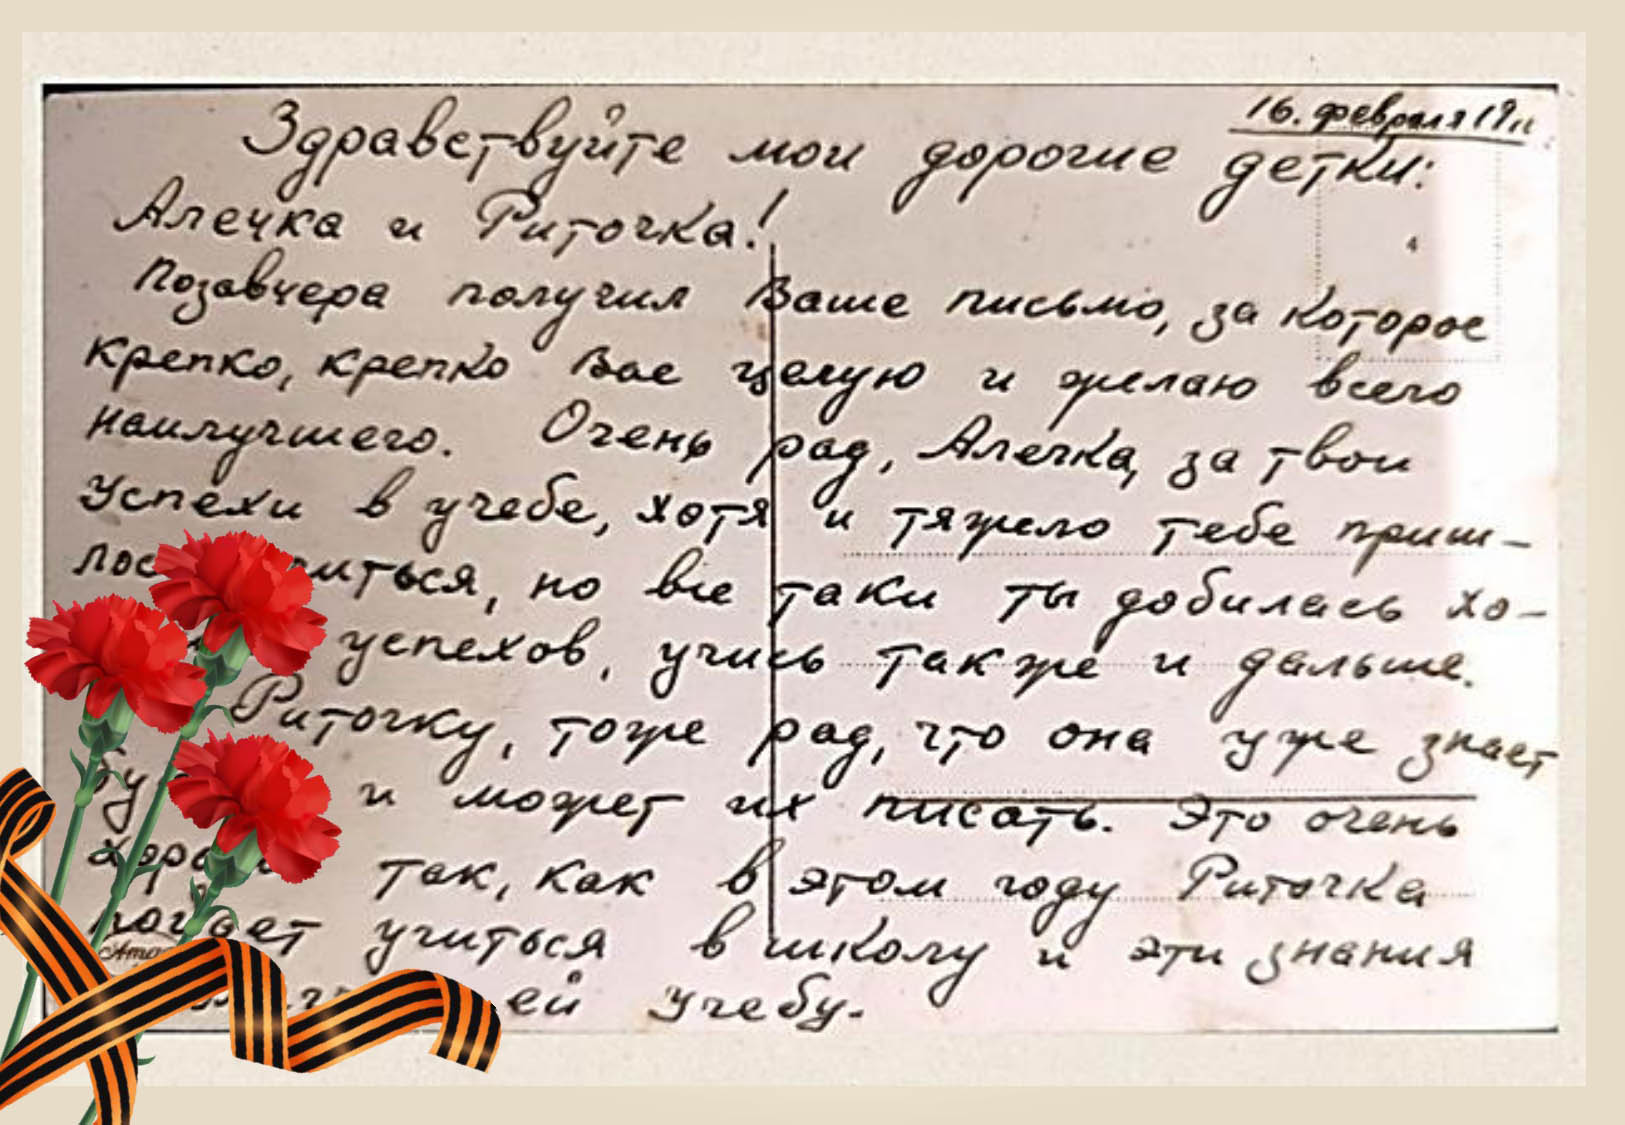 16. февраля 19
Здравствуйте мои дорогие детки:
Алечка и Риточка!
Позавчера получил Ваше письмо, за которое
крепко, крепко Вас целую и желаю всего
наилучшего. Очень рад, Алечка, за твои
успехи в учебе, хотя и тяжело тебе приш-
но все таки ты добилась хо-
успехов, учись также и дальше.
Риточку, тоже рад, что она уже знает
и может их писать. Это очень
так, как в этом году Риточка
учиться в школу и эти знания
ей учебу.